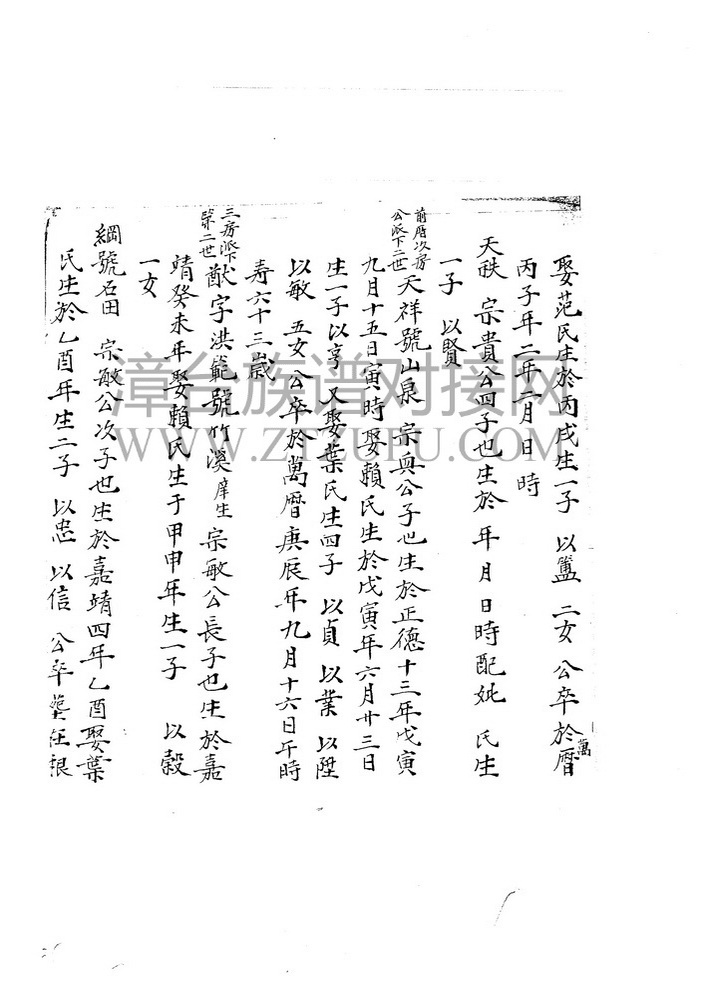 娶范氏生於丙戌生一子 以簠 二女 公卒於萬曆
丙子年二年二月日時
天秩 宗貴公四子也生於 年月日時配妣 氏生
一子 以賢
前厝次房
公派下二世
天祥號山泉 宗與公子也生於正德十三年戊寅
九月十五日寅時娶賴氏生於戊寅年六月廿三日
生一子以亨 又娶葉氏生四子 以貞 以業 以陞
以敏 五女公卒於萬曆庚辰年九月十六日午時
寿六十三歲
三房派下
第二世
猷字洪範號竹溪 庠生 宗敏公長子也生於嘉
靖癸未年娶賴氏生于甲申年生一子 以穀
一女
綱號石田 宗敏公次子也生於嘉靖四年乙酉娶葉
氏生於乙酉年生二子 以忠 以信 公卒塟在
漳台族谱对接网
WWW.ZTZUPU.COM